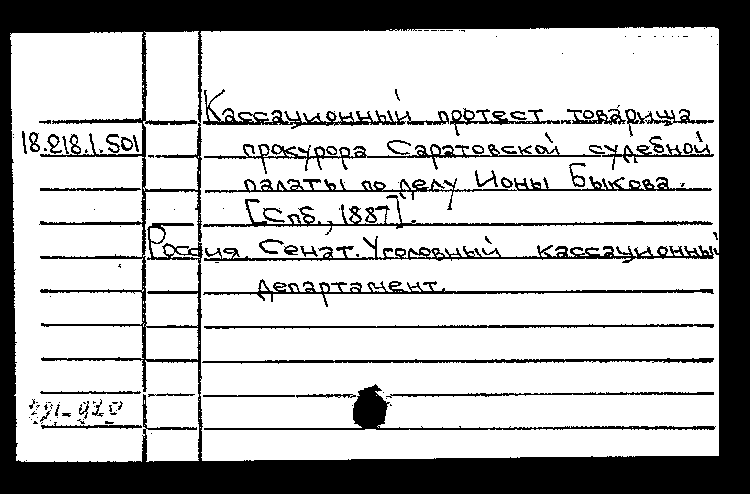 Кассационный протест товарища
18.218.1.501 прокурора Саратовской судебной
палаты по делу Ионы Быкова.
[Спб., 1887].
Россия. Сенат. Уголовный кассационный
департамент.